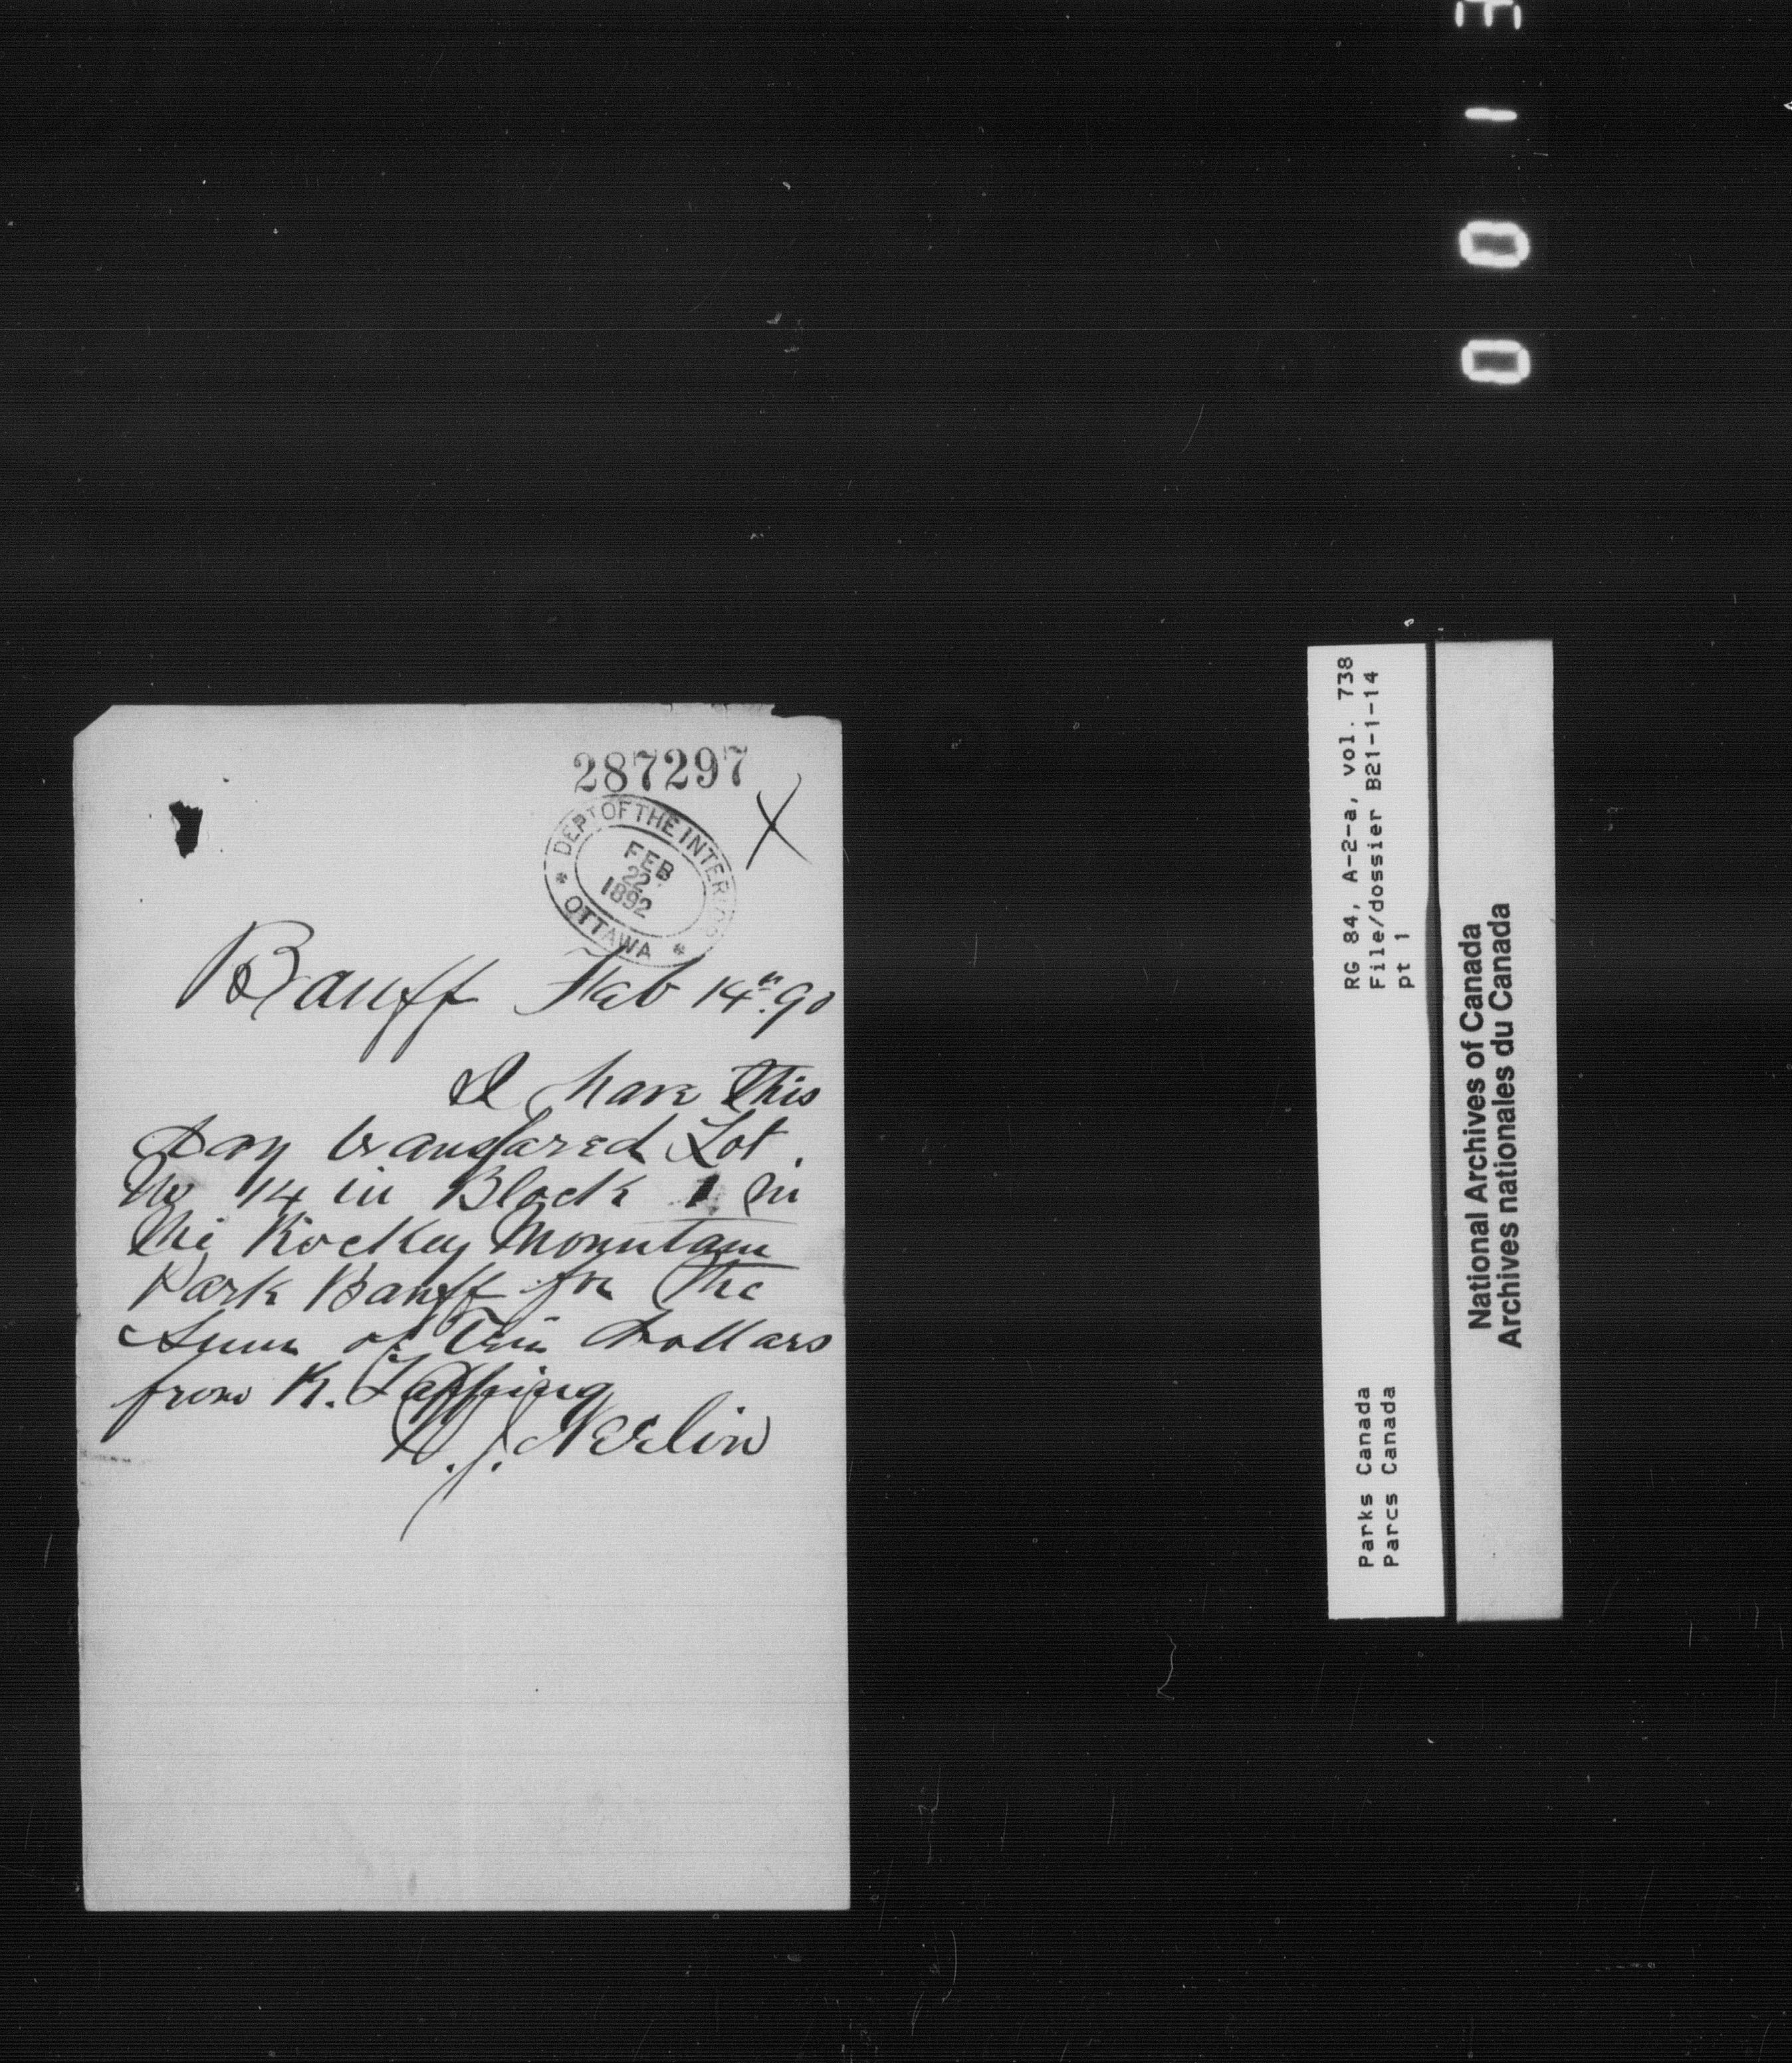 287297
DEPT OF THE INTERIOR
FEB
22
1892
OTTAWA
X
Banff Feb 14th 90
I have this
day transfared Lot
No 14 in Block 1 in
the Rockey Mountain
Park Banff for the
Sum of Ten Dollars
from K.
Nerlin
RG 84, A-2-a, vol. 738
File/dossier B21-1-14
pt 1
Parks Canada
Parcs Canada
National Archives of Canada
Archives nationales du Canada
0 0 1 3